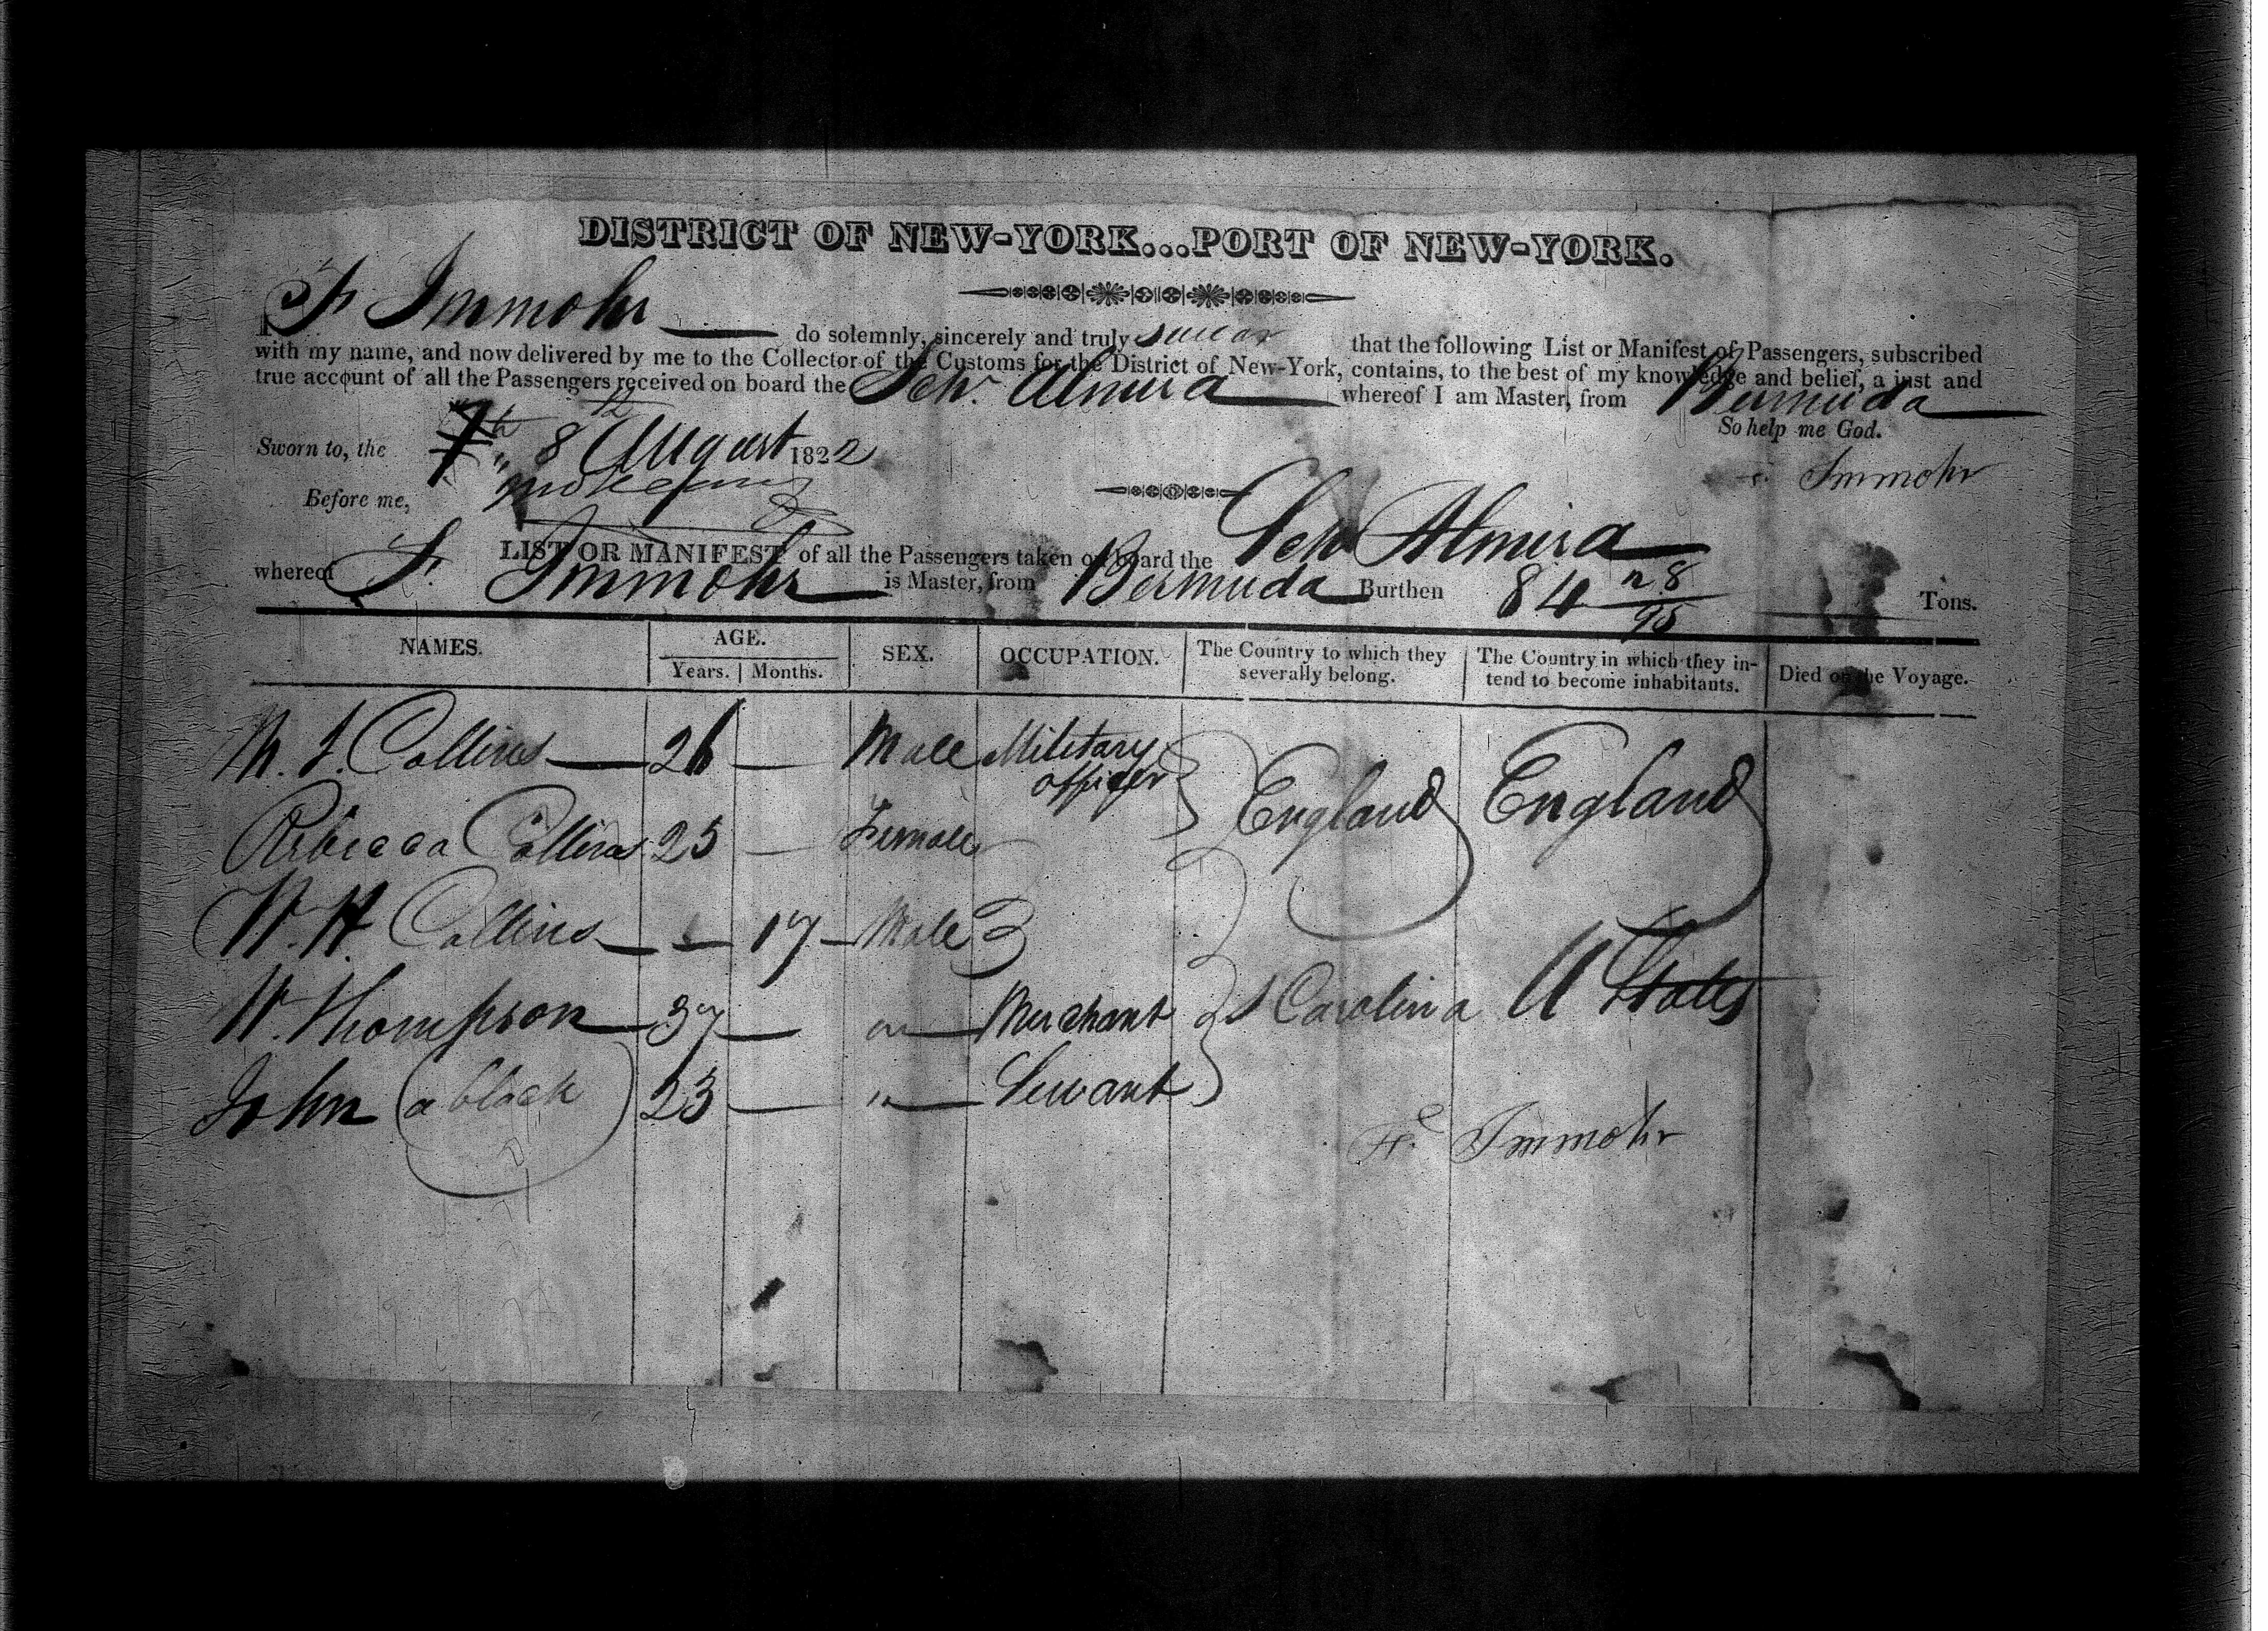 DISTRICT OF NEW-YORK...PORT OF NEW-YORK.
I F. Immohr do solemnly, sincerely and truly swear that the following List or Manifest of Passengers, subscribed
with my name, and now delivered by me to the Collector of the Customs for the District of New-York, contains, to the best of my knowledge and belief, a just and
true account of all the Passengers received on board the Schr Almira whereof I am Master, from Bermuda
So help me God.
Sworn to, the 8 August 1822
F. Immohr
Before me,
LIST OR MANIFEST of all the Passengers taken on board the Schr Almira
whereof F. Immohr is Master, from Bermuda Burthen 84 28/95 Tons.
NAMES. AGE. SEX. OCCUPATION. The Country to which they severally belong. The Country in which they intend to become inhabitants. Died on the Voyage.
Years. Months.
M. J. Collins 26 Male Military officer England England
Rebecca Collins 25 Female
W. H. Collins 17 Male
W. Thompson 37 " Merchant S Carolina U States
John (a black) 23 " Servant
F. Immohr